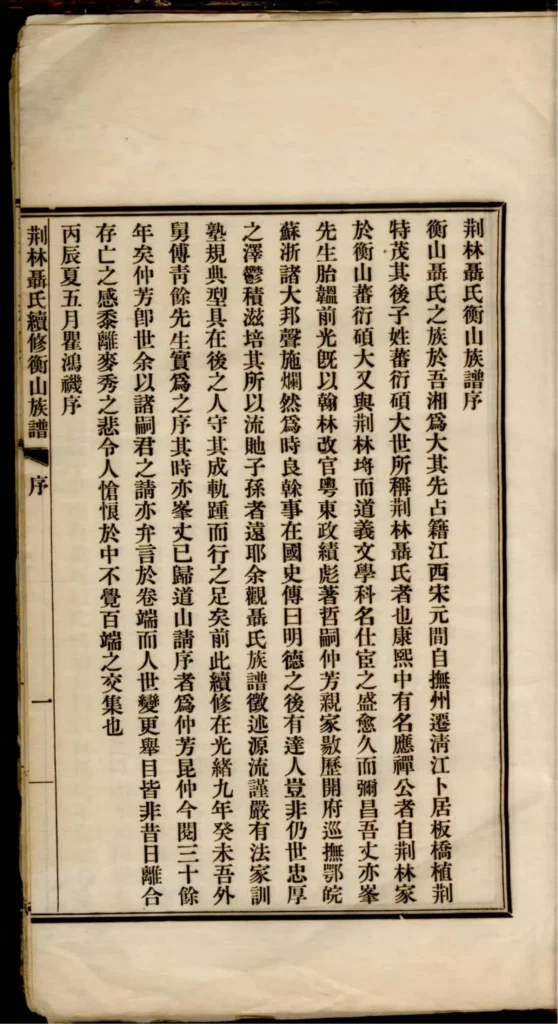 荆林聶氏衡山族譜序
衡山聶氏之族於吾湘爲大其先占籍江西宋元間自撫州遷淸江卜居板橋植荆
特茂其後子姓蕃衍碩大世所稱荆林聶氏者也康熙中有名應禪公者自荆林家
於衡山蕃衍碩大又與荆林埒而道義文學科名仕宦之盛愈久而彌昌吾丈亦峯
先生胎韞前光旣以翰林改官粵東政績彪著哲嗣仲芳親家敭歷開府巡撫鄂皖
蘇浙諸大邦聲施爛然爲時良榦事在國史傳曰明德之後有達人豈非仍世忠厚
之澤鬱積滋培其所以流貤子孫者遠耶余觀聶氏族譜徵述源流謹嚴有法家訓
塾規典型具在後之人守其成軌踵而行之足矣前此續修在光緒九年癸未吾外
舅傅靑餘先生實爲之序其時亦峯丈已歸道山請序者爲仲芳昆仲今閱三十餘
年矣仲芳卽世余以諸嗣君之請亦弁言於卷端而人世變更舉目皆非昔日離合
存亡之感黍離麥秀之悲令人愴悢於中不覺百端之交集也
丙辰夏五月瞿鴻禨序
荆林聶氏續修衡山族譜 序 一